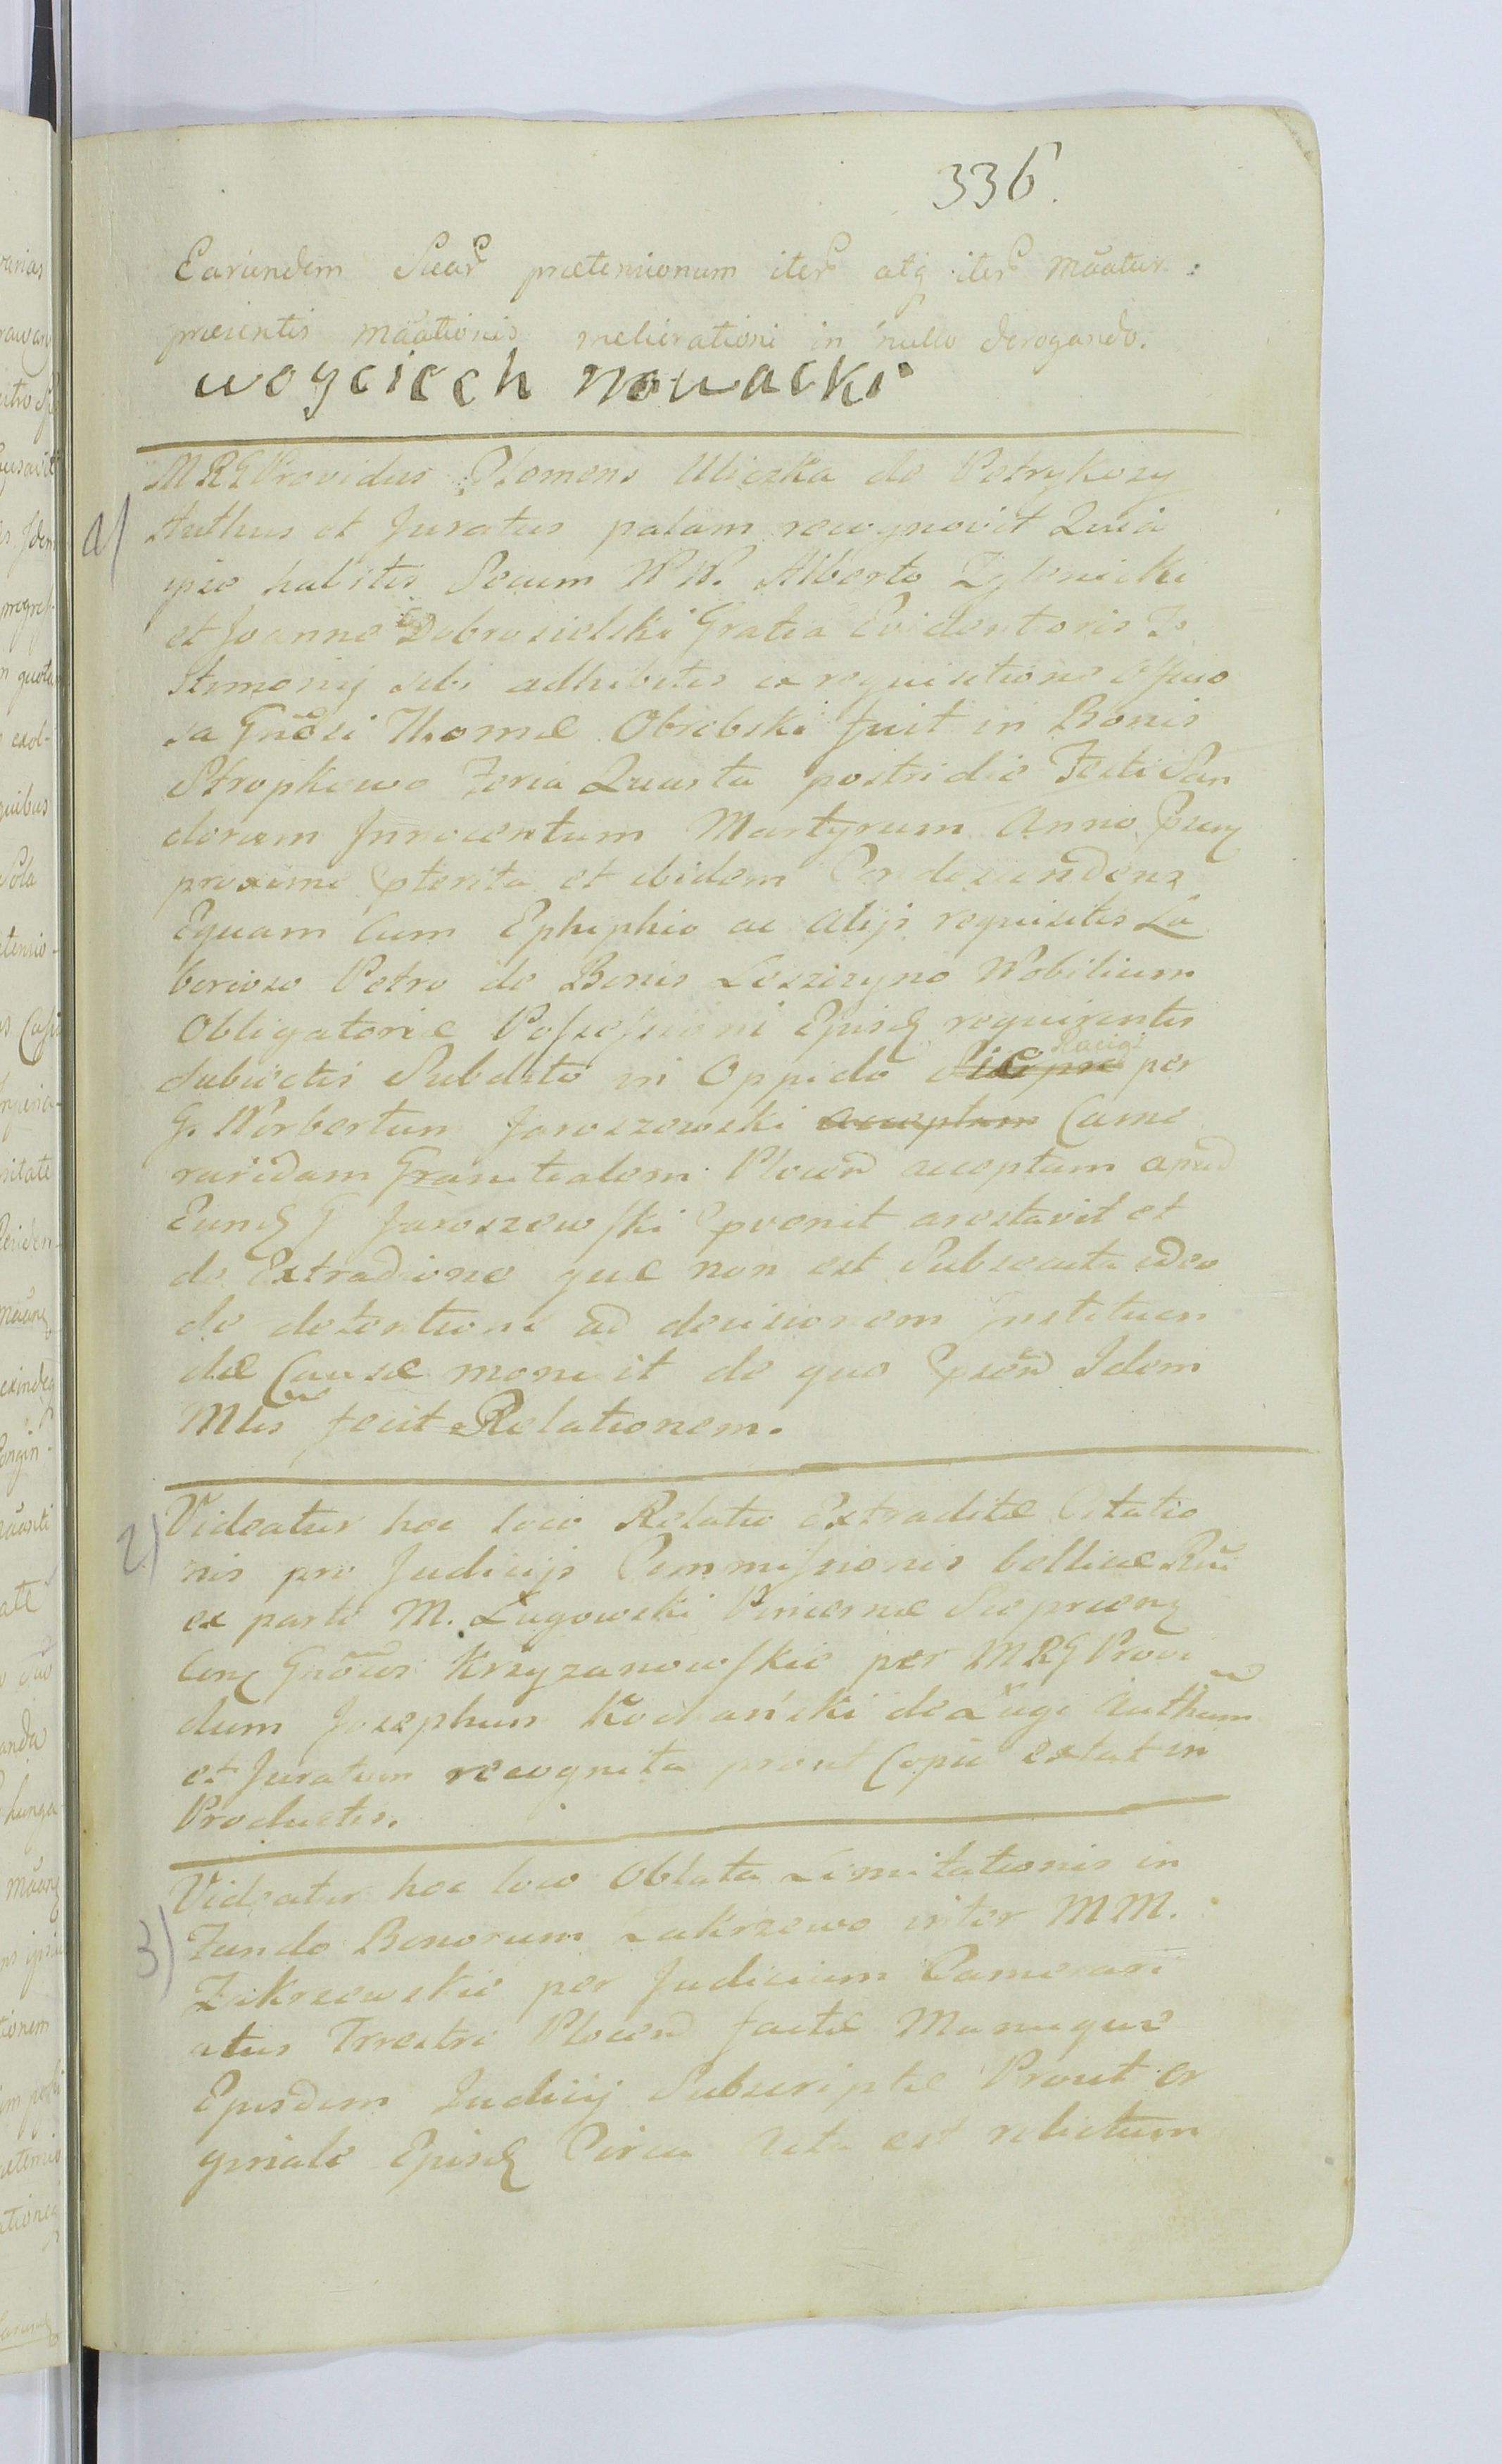 336.
Earundem Suar prætensionum iter atq iter mãatur
præsentis mãationis meliorationi in nullo derogando.
woyciech nowacki
MRG Providus Clemens Uliczka de Petrykozy
1) Authus et Juratus palam recognovit Quia
ipse habitis Secum NN. Alberto Zglenicki
et Joanne Dobrosielski Gratia Evidentioris Te
stimonij sibi adhibitis ex requisitione offiuo
sa Gnosi Thomæ Obrebski fuit in Bonis
Stropkowo Feria Quarta postridie Festi San
ctorum Innocentum Martyrum Anno
proxime pterita et ibidem
Equam Cum Ephiphio ac alijs requisitis La
borioso Petro de Bonis Leszczyno Nobilium
Obligatoriæ Possessioni Ejusd requirentis
Subiectis Subdito in Oppido Sierpec Raciąż per
G. Norbertum Jaroszewski acceptam Came
rarium Granitialem Plocen acceptam apud
Eund G Jaroszewski pvenit arestavit et
de Extradione quæ non est Subsecuta adeo
de detentione ad decisionem Instituen
dæ Causæ monuit de quo Idem
Mlis fecit Relationem.
2) Videatur hoc loco Relatio Extraditæ Citatio
nis pro Judicijs Commissionis bellicæ Rni
ex parte M. Lugowski Pincernæ Sieprcen
Con Gnosos Krzyzanowskie per MRG Provi
dum Josephum Kochański de Ługi Authum
et Juratum recognita prout Copia extat in
Productis.
3) Videatur hoc loco Oblata Limitationis in
Fundo Bonorum Zakrzewo inter MM.
Zakrzewskie per Judicium Camerari
atus Trrestri Plocen factæ Manuque
Ejusdem Judicij Subscriptæ Prout or
ginale Ejusd Circa Acta est relictum